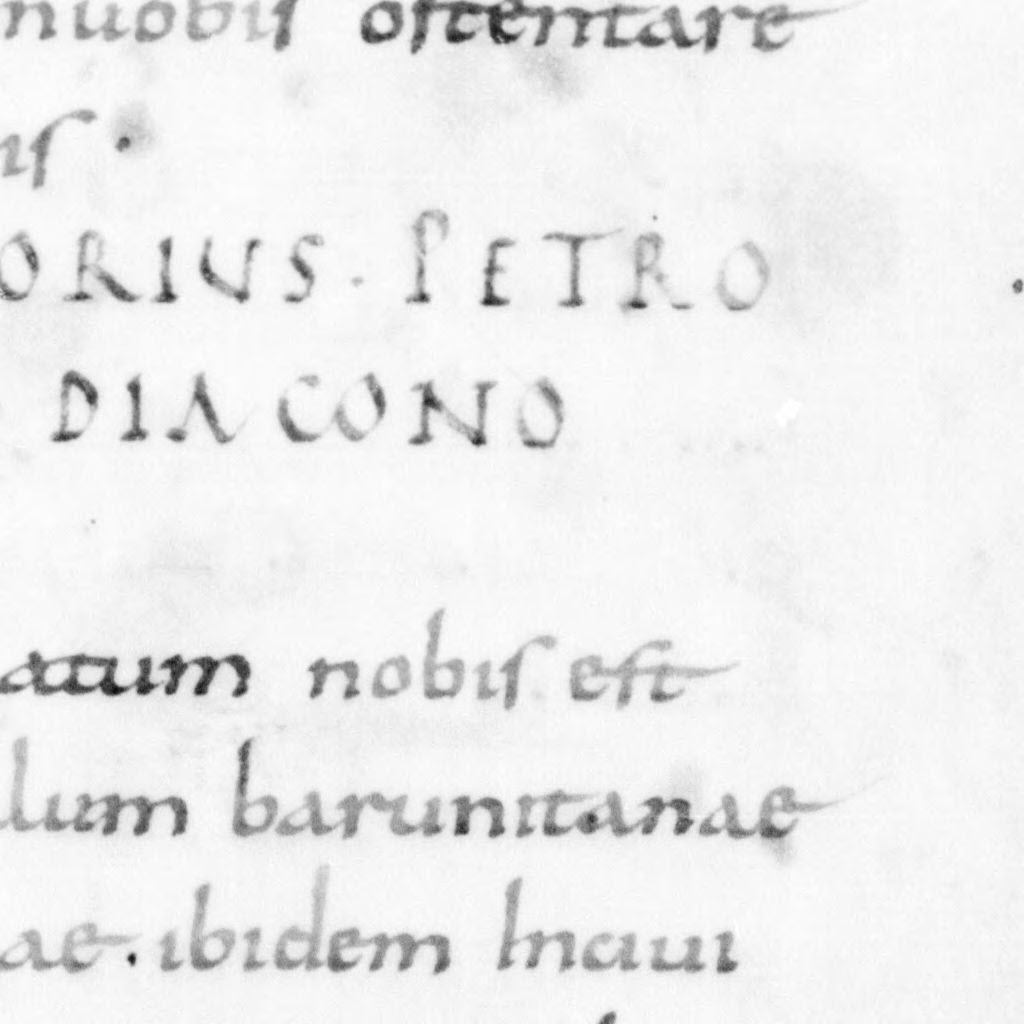 nuobis ostentare
is .
ORIUS · PETRO
DIACONO
atum nobis est
lum barunitanae
ae . ibidem Inciui